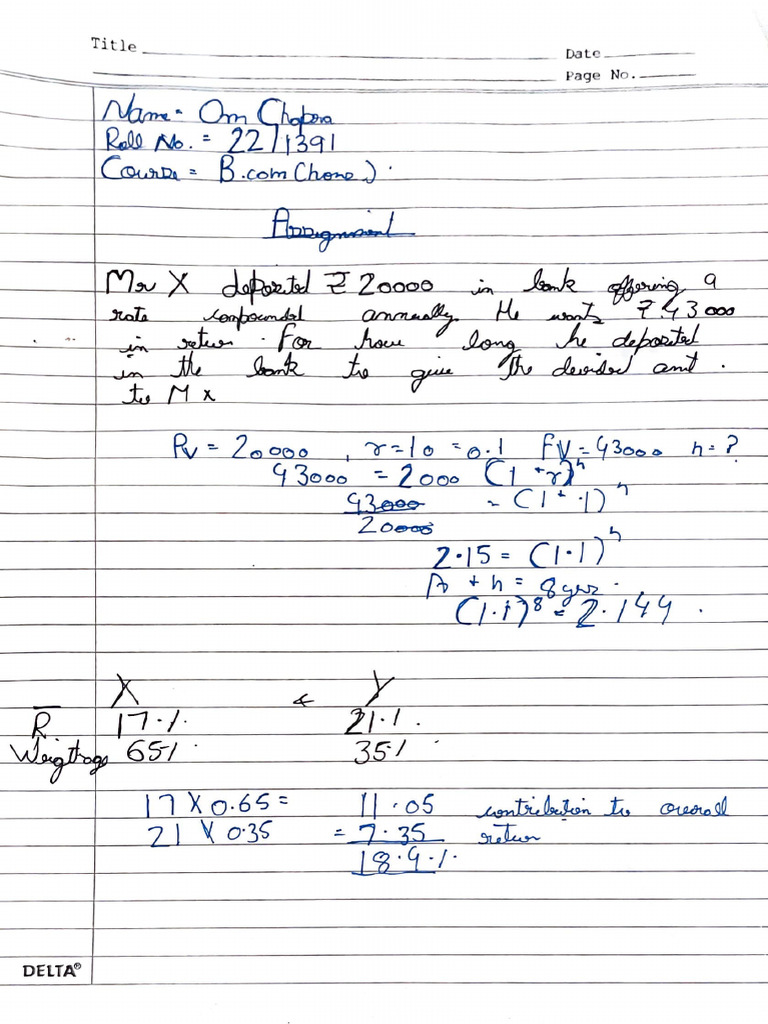 Title
Date
Page No.
Name - Om Chopra
Roll No. = 22/1391
Course = B.com (hons).
Assignment
Mr X deposited ₹ 20000 in bank offering a
rate compounded annually He wants ₹.43000
in return. For how long he deposited
in the bank to give the devided amt.
to M x
Pv = 20000 , r=10 = 0.1 FV = 43000 n = ?
43000 = 2000 (1 + r)ⁿ
43000 = (1 + .1)ⁿ
20000
2.15 = (1.1)ⁿ
At n = 8 yers.
(1.1)⁸ = 2.144 .
X & Y
R̅ 17.1. 21.1.
Weigthage 65% 35%
17 X 0.65 = 11.05 contribution to overall
21 X 0.35 = 7.35 return
18.4.1.
DELTA®